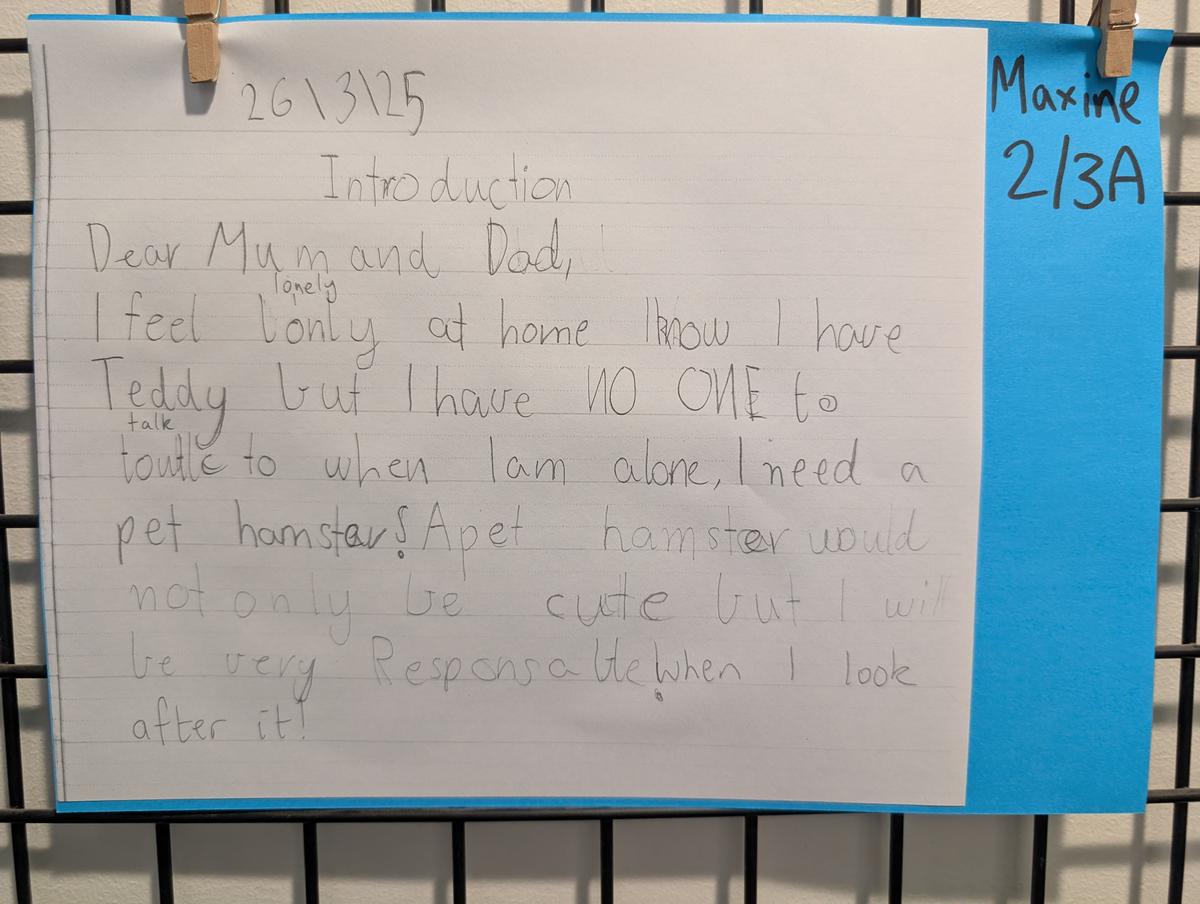 26\3\25
Introduction
Dear Mum and Dad,
lonely
I feel lonly at home I know I have
Teddy but I have NO ONE to
talk
toutlc to when I am alone, I need a
pet hamster! A pet hamster would
not only be cute but I will
be very Responsable! when I look
after it!
Maxine
2/3A